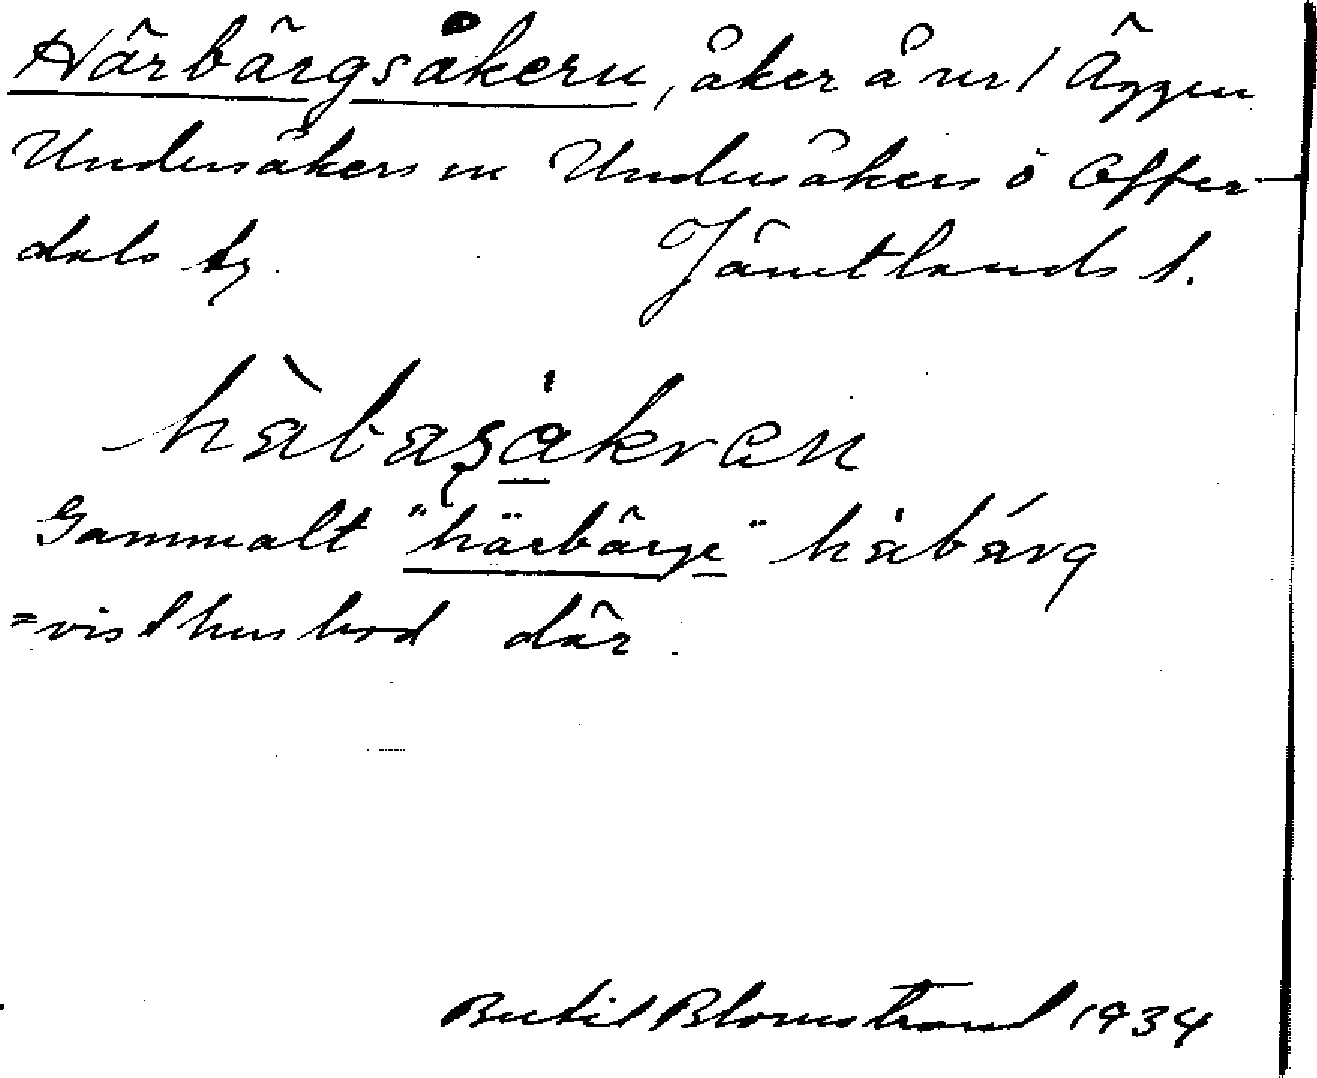 Härbärgsåkern, åker å nr 1 Äggen
Undersåkers sn Undersåkers o Offer-
dals tg. Jämtlands l.
Gammalt "härbärge" håbärg
=visthusbod där.
Bertil Blomstrand 1934